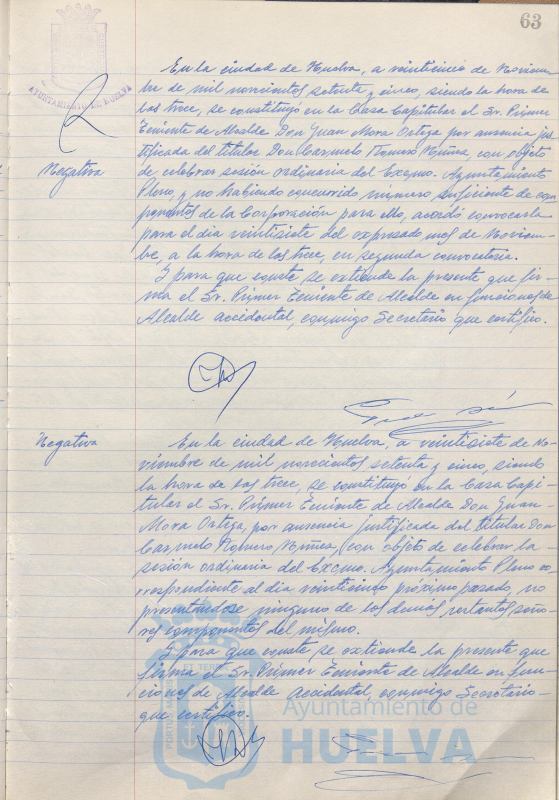 63
AYUNTAMIENTO DE HUELVA
En la ciudad de Huelva, a veinticinco de Noviem-
bre de mil novecientos setenta y cinco, siendo la hora de
las trece, se constituyó en la Casa Capitular el Sr. Primer
Teniente de Alcalde Don Juan Mora Ortega por ausencia jus-
tificada del titular Don Carmelo Romero Núñez, con objeto
Negativa
de celebrar sesión ordinaria del Excmo. Ayuntamiento
Pleno, y no habiendo concurrido número suficiente de com-
ponentes de la Corporación para ello, acordó convocarla
para el día veintisiete del expresado mes de Noviem-
bre, a la hora de las trece, en segunda convocatoria.
Y para que conste se extiende la presente que fir-
ma el Sr. Primer Teniente de Alcalde en funciones de
Alcalde accidental, conmigo Secretario que certifico.
Negativa
En la ciudad de Huelva, a veintisiete de No-
viembre de mil novecientos setenta y cinco, siendo
la hora de las trece, se constituyó en la Casa Capi-
tular el Sr. Primer Teniente de Alcalde Don Juan
Mora Ortega, por ausencia justificada del titular Don
Carmelo Romero Núñez, con objeto de celebrar la
sesión ordinaria del Excmo. Ayuntamiento Pleno co-
rrespondiente al día veinticinco próximo pasado, no
presentándose ninguno de los demás restantes seño-
res componentes del mismo.
Y para que conste, se extiende la presente que
firma el Sr. Primer Teniente de Alcalde en fun-
ciones de Alcalde Accidental, conmigo Secretario
que certifico.
Ayuntamiento de
HUELVA